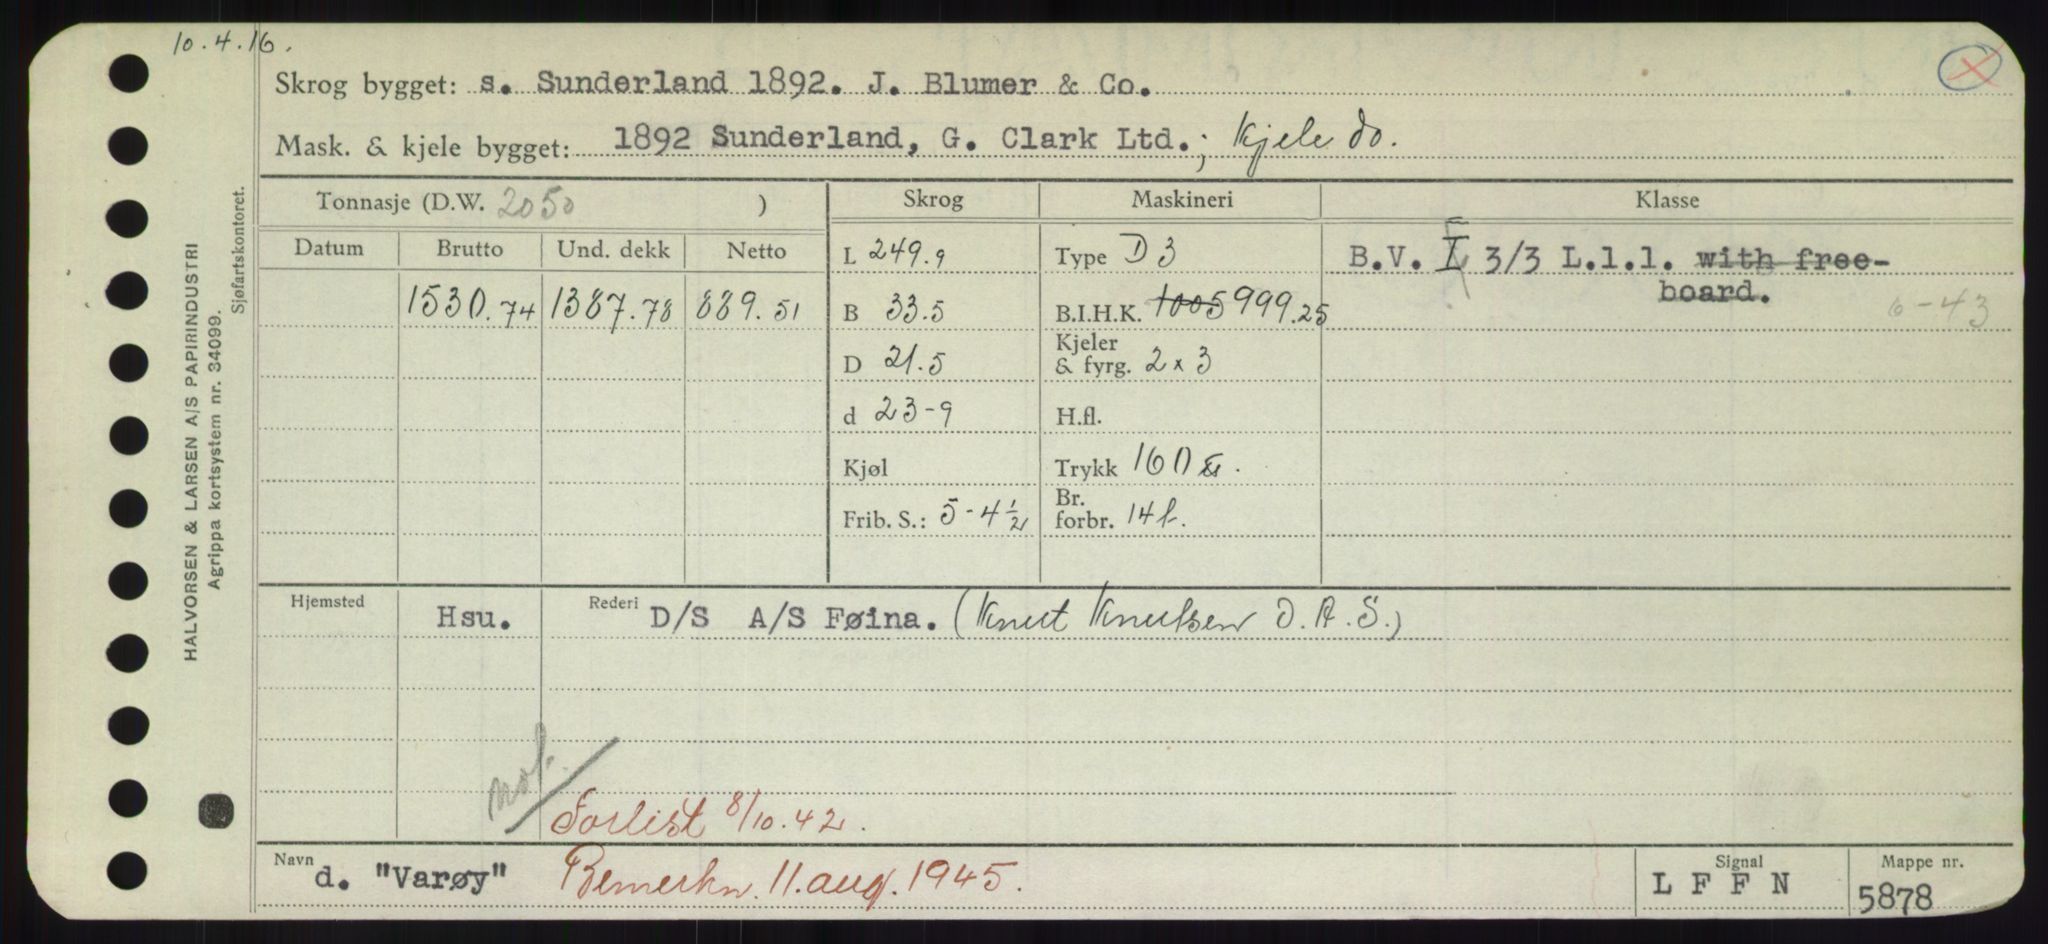 10.4.16.
Skrog bygget: s. Sunderland 1892. J. Blumer & Co.
Mask. & kjele bygget: 1892 Sunderland, G. Clark Ltd.; Kjele do.
Tonnasje (D.W. 2050 )
Skrog
Maskineri
Klasse
Datum
Brutto
Und. dekk
Netto
1530.74
1387.78
889.51
L 249.9
B 33.5
D 21.5
d 23-9
Kjøl
Frib. S.: 5-4½
Type D 3
B.I.H.K. 1005 999.25
Kjeler
& fyrg. 2 x 3
H.fl.
Trykk 160
Br.
forbr. 14 t.
B.V. I 3/3 L.l.l. with free-
board.
6-43
Hjemsted
Hsu.
Rederi
D/S A/S Føina. (Knut Knutsen O.A.S.)
Forlist 8/10.42.
Navn
d. "Varøy"
Bemerkn. 11. aug. 1945.
Signal
L F F N
Mappe nr.
5878
HALVORSEN & LARSEN A/S PAPIRINDUSTRI
Agrippa kortsystem nr. 34099.
Sjøfartskontoret.